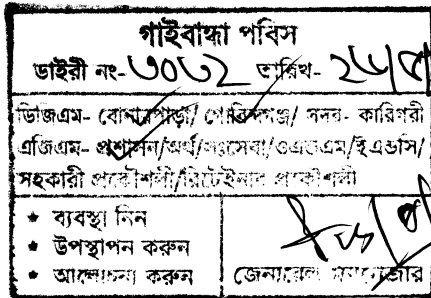 গাইবান্ধা পবিস
ডাইরী নং-৩০৬২ তারিখ-
ডিজিএম- বোনারপাড়া/ গোবিন্দগঞ্জ/ সদর- কারিগরী
এজিএম- প্রশাসন/অর্থ/সঃসেবা/ওএন্ডএম/ইএন্ডসি/
সহকারী প্রকৌশলী/রিটেইনার প্রকৌশলী
★ ব্যবস্থা নিন
★ উপস্থাপন করুন
★ আলোচনা করুন
জেনারেল ম্যানেজার